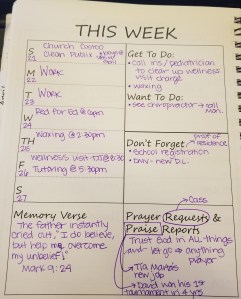 THIS WEEK
S
21
Church Costco
Clean Public
M
22
Work
T
23
Work
W
24
Red for Ed @
TH
25
Waxing @ 2:30pm
F
26
Wellness visit
Tutoring @ 5:30pm
S
27
Get To Do:
• call ins/pediatrician
to clear up wellness
visit charge
• waxing
Want To Do:
• see chiropractor → call
Mon.
Don't Forget:
proof of
residence
• school registration
• DMV - new DL
Memory Verse
"The father instantly
cried out, "I do believe,
but help me overcome
my unbelief!"
Mark 9:24
Prayer Requests &
Praise Reports
Trust God in ALL things
and let go → anything,
prayer
new job
David won his 1st
tournament in 4 yrs